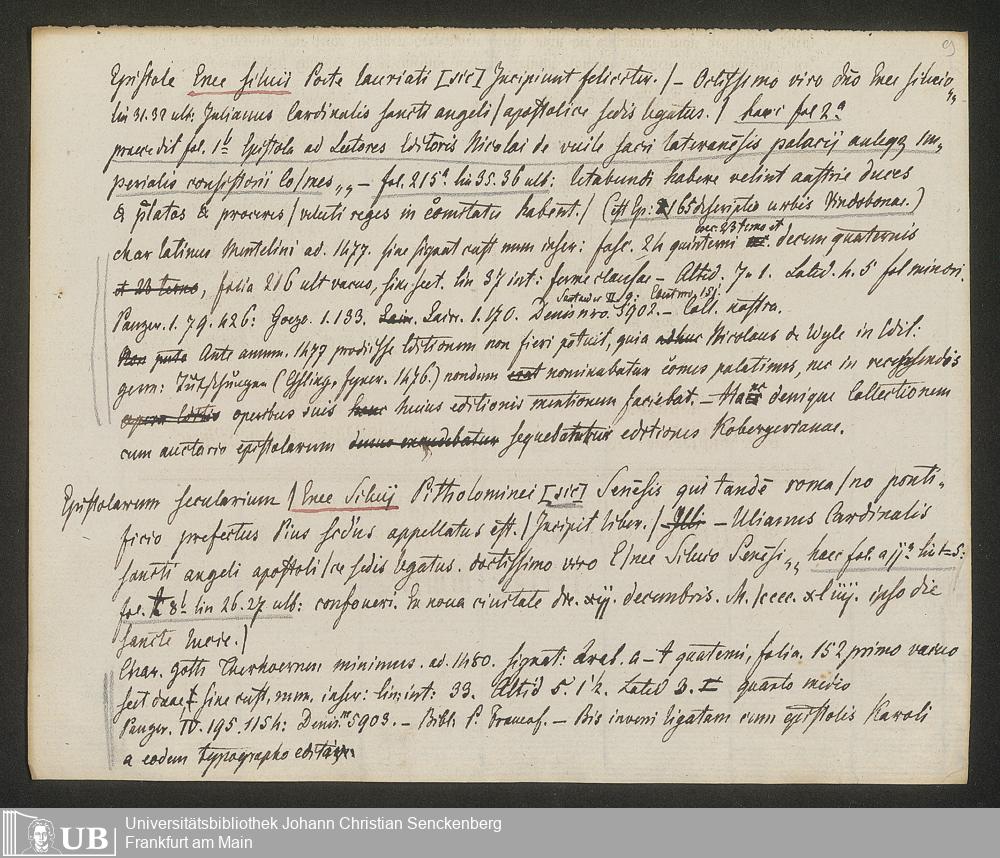 9
Epistole Enee siluij Poete laureati [sic] Incipiunt feliciter. /– Dctissimo viro dño Enee siluio„
lin 31.32 ult: Julianus Cardinalis sancti angeli / apostolice sedis legatus. / haec fol 2a
praecedit fol. 1b Epistola ad Lectores Editoris Nicolai de vuile sacri lateranēsis palacij auleqz im„
perialis consistorii Co/mes„ – fol. 215a lin 35. 36 ult: letabundi habere velint austrie duces
& p̄latos & proceres / veluti reges in cōmitatu habent. / (est Ep: 165 descriptio urbis Vindobonae.)
char latinus ad. 1477. sine signat cust num inser: fasc. 24 quinterni nec 23 terno et decem quaternis
et 23 terno, folia 216 ult vacuo, sine sect. lin 37 int: ferme clausae – Altid. 7. 1. Latid. 4. 5 fol minori.
Panzer. 1. 79. 426: Goeze. 1. 133. Lair. 1. 170. Denis nro. 5902. – Coll. nostra.
Non puto Ante annum. 1477 prodiisse Editionem non fieri potuit, quia adhuc Nicolaus de Wyle in Edit:
germ: (Essling, Fyner. 1476.) nondum erat nominabatur cōmes palatinus, nec in recensendis
operibus suis hanc huius editionis mentionem faciebat. – denique Collectionem
cum auctario epistolarum denuo excudebatur sequebatur editiones Kobergerianae.
Epistolarum secularium / Enee Siluij Pitholominei [sic] Senēsis qui tandē roma / no ponti„
ficio prefectus Pius sc̄dus appellatus est. / Incipit liber. / Jlli – Ulianus Cardinalis
sancti angeli apostoli / ce sedis legatus. doctissimo viro E / nee Siluio Senēsi„ haec fol. a ij a lin 1–5:
fol. t 8b lin 26. 27 ult: confoueri. Ex noua ciuitate die. xij. decembris. M. / cccc. xliiij. ipso die
sancte lucie. /
Char. goth Therhoernen minimus. ad. 1480. signat: a – t quaterni, folia. 152 primo vacuo
sect sine cust, num, inser: lin: int: 33. Altid 5. 1½. Latid 3. quarto medio
Panzer. IV. 195 1154: Denis 5903. – Bibl. P. Francof. – Bis inveni ligatam cum epistolis Karoli
a eodem typographo editis.
UB
Universitätsbibliothek Johann Christian Senckenberg
Frankfurt am Main